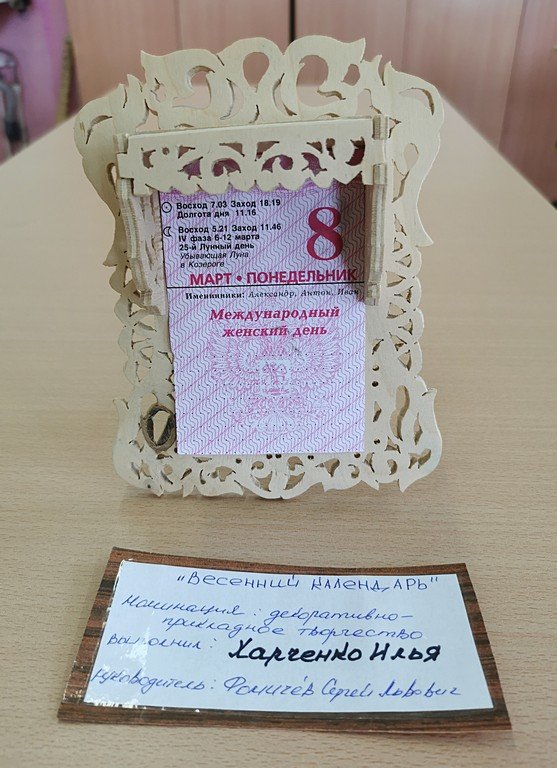 Восход 7.03 Заход 18.19
Долгота дня 11.16
8
Восход 5.21 Заход 11.46
IV фаза 6-12 марта
25-й Лунный день
Убывающая Луна
в Козероге
МАРТ • ПОНЕДЕЛЬНИК
Именинники: Александр, Антон, Иван
Международный
женский день
"Весенний календарь"
Номинация: декоративно-
прикладное творчество
Выполнил: Харченко Илья
Руководитель: Фомичёв Сергей Львович